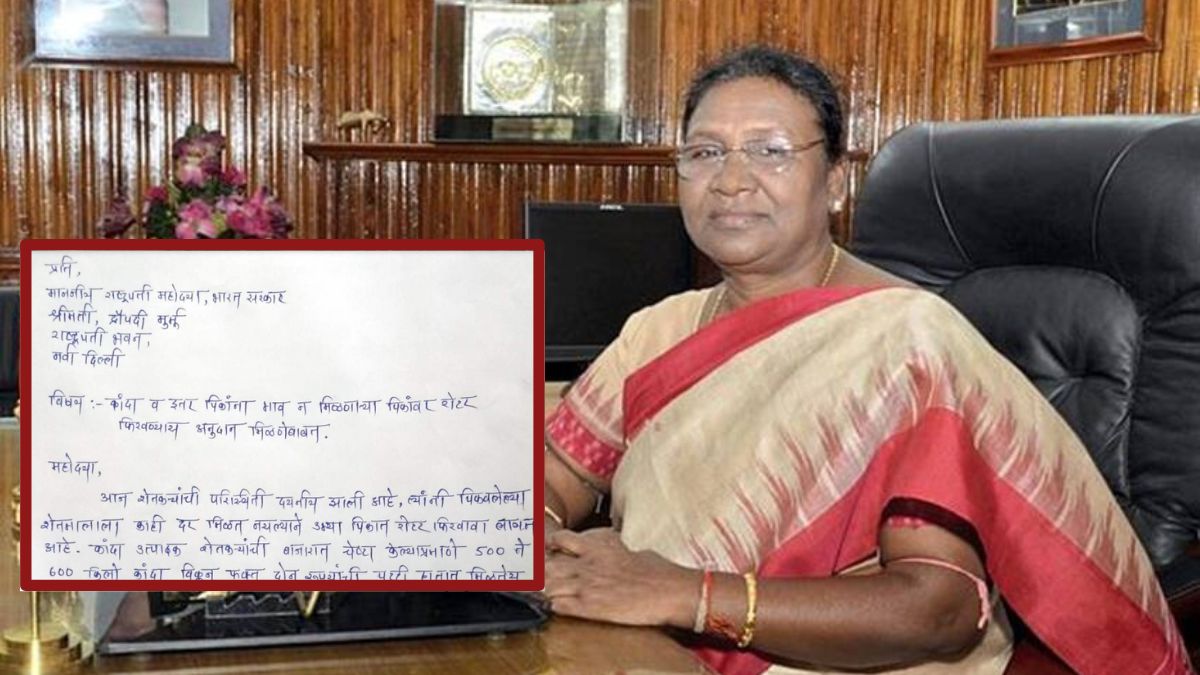 प्रति,
माननीय राष्ट्रपती महोदया, भारत सरकार
श्रीमती, द्रौपदी मुर्मू
राष्ट्रपती भवन,
नवी दिल्ली
विषय :- कांदा व इतर पिकांना भाव न मिळणाऱ्या पिकांवर रोटर
फिरवण्यास अनुदान मिळणेबाबत.
महोदया,
आज शेतकऱ्यांची परिस्थिती दयनीय झाली आहे, त्यांनी पिकवलेल्या
शेतमालाला काही दर मिळत नसल्याने उभ्या पिकात रोटर फिरवावा लागत
आहे. कांदा उत्पादक शेतकऱ्यांची बाजारात चेष्टा केल्याप्रमाणे 500 ते
600 किलो कांदा विकून फक्त दोन रूपयांची पट्टी हातात मिळतेय